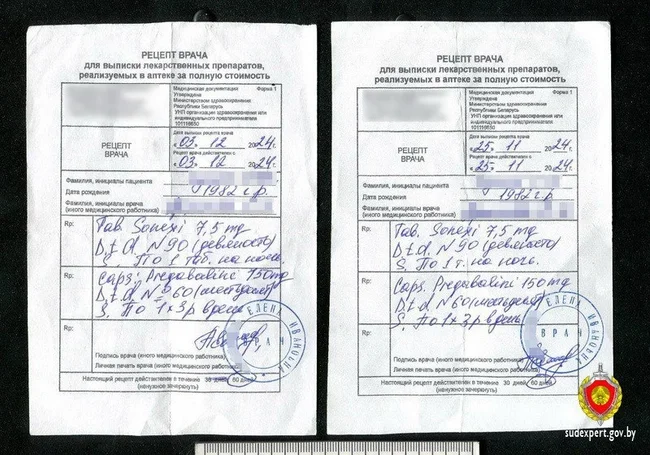 РЕЦЕПТ ВРАЧА
для выписки лекарственных препаратов,
реализуемых в аптеке за полную стоимость
Медицинская документация Форма 1
Утверждена
Министерством здравоохранения
Республики Беларусь
УНП организации здравоохранения или
индивидуального предпринимателя
РЕЦЕПТ
ВРАЧА
Дата выписки рецепта врача
«03» 12 2024 г.
Рецепт врача действителен с
«03» 12 2024 г.
Фамилия, инициалы пациента
Дата рождения 1982 г.р.
Фамилия, инициалы врача
(иного медицинского работника)
Rp: Tab. Sonexi 7,5 mg
D.t.d. N 90 (девяносто)
S. По 1 таб. на ночь.
Rp: Caps. Pregabalini 150 mg
D.t.d. № 60 (шестьдесят)
S. По 1 × 3 р в день
Rp:
ЕЛЕНА ИВАНОВНА
ВРАЧ
Подпись врача (иного медицинского работника)
Личная печать врача (иного медицинского работника)
Настоящий рецепт действителен в течение 30 дней, 60 дней
(ненужное зачеркнуть)
РЕЦЕПТ ВРАЧА
для выписки лекарственных препаратов,
реализуемых в аптеке за полную стоимость
Медицинская документация Форма 1
Утверждена
Министерством здравоохранения
Республики Беларусь
УНП организации здравоохранения или
индивидуального предпринимателя
РЕЦЕПТ
ВРАЧА
Дата выписки рецепта врача
«25» 11 2024 г.
Рецепт врача действителен с
«25» 11 2024 г.
Фамилия, инициалы пациента
Дата рождения 1982 г.р.
Фамилия, инициалы врача
(иного медицинского работника)
Rp: Tab. Sonexi 7,5 mg
D.t.d. N 90 (девяносто)
S. По 1 т. на ночь.
Rp: Caps. Pregabalini 150 mg
D.t.d. N 60 (шестьдесят)
S. По 1 × 3 р в день
Rp:
ЕЛЕНА ИВАНОВНА
ВРАЧ
Подпись врача (иного медицинского работника)
Личная печать врача (иного медицинского работника)
Настоящий рецепт действителен в течение 30 дней, 60 дней
(ненужное зачеркнуть)
sudexpert.gov.by